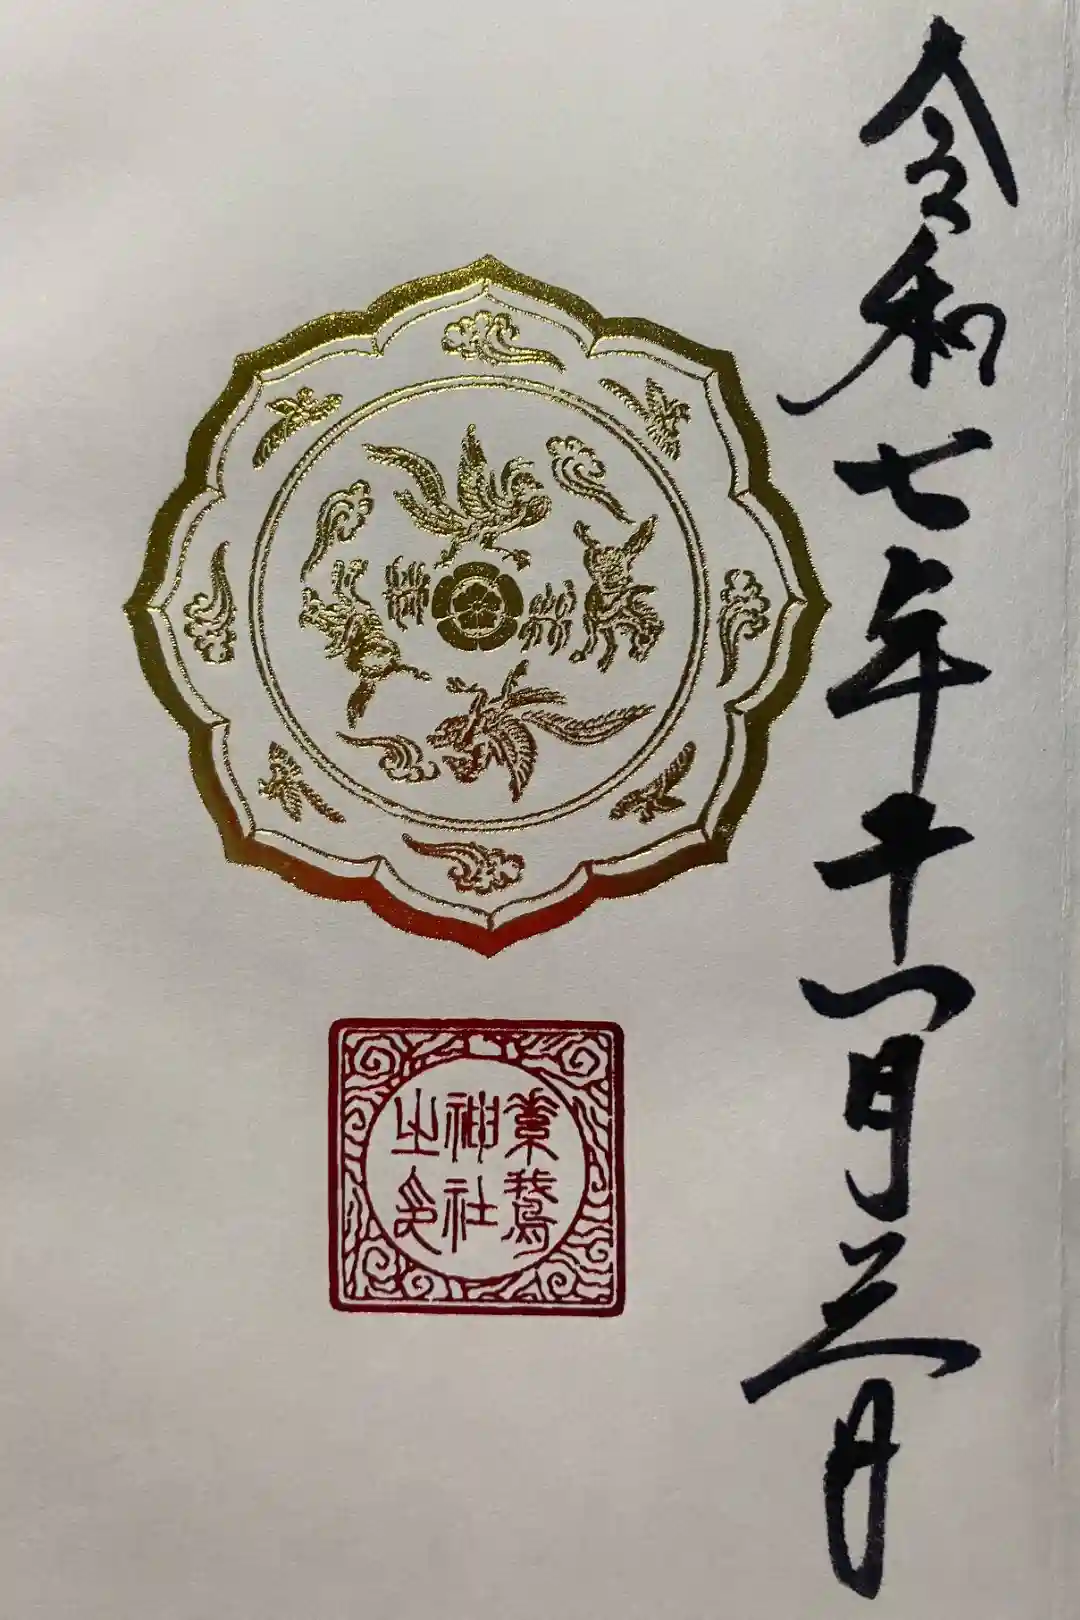 令和七年十一月三日
素鵞
神社
之印